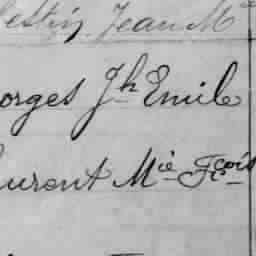 lestin Jean M^ie
orges J^h Emile
aurent M^ie F^çois